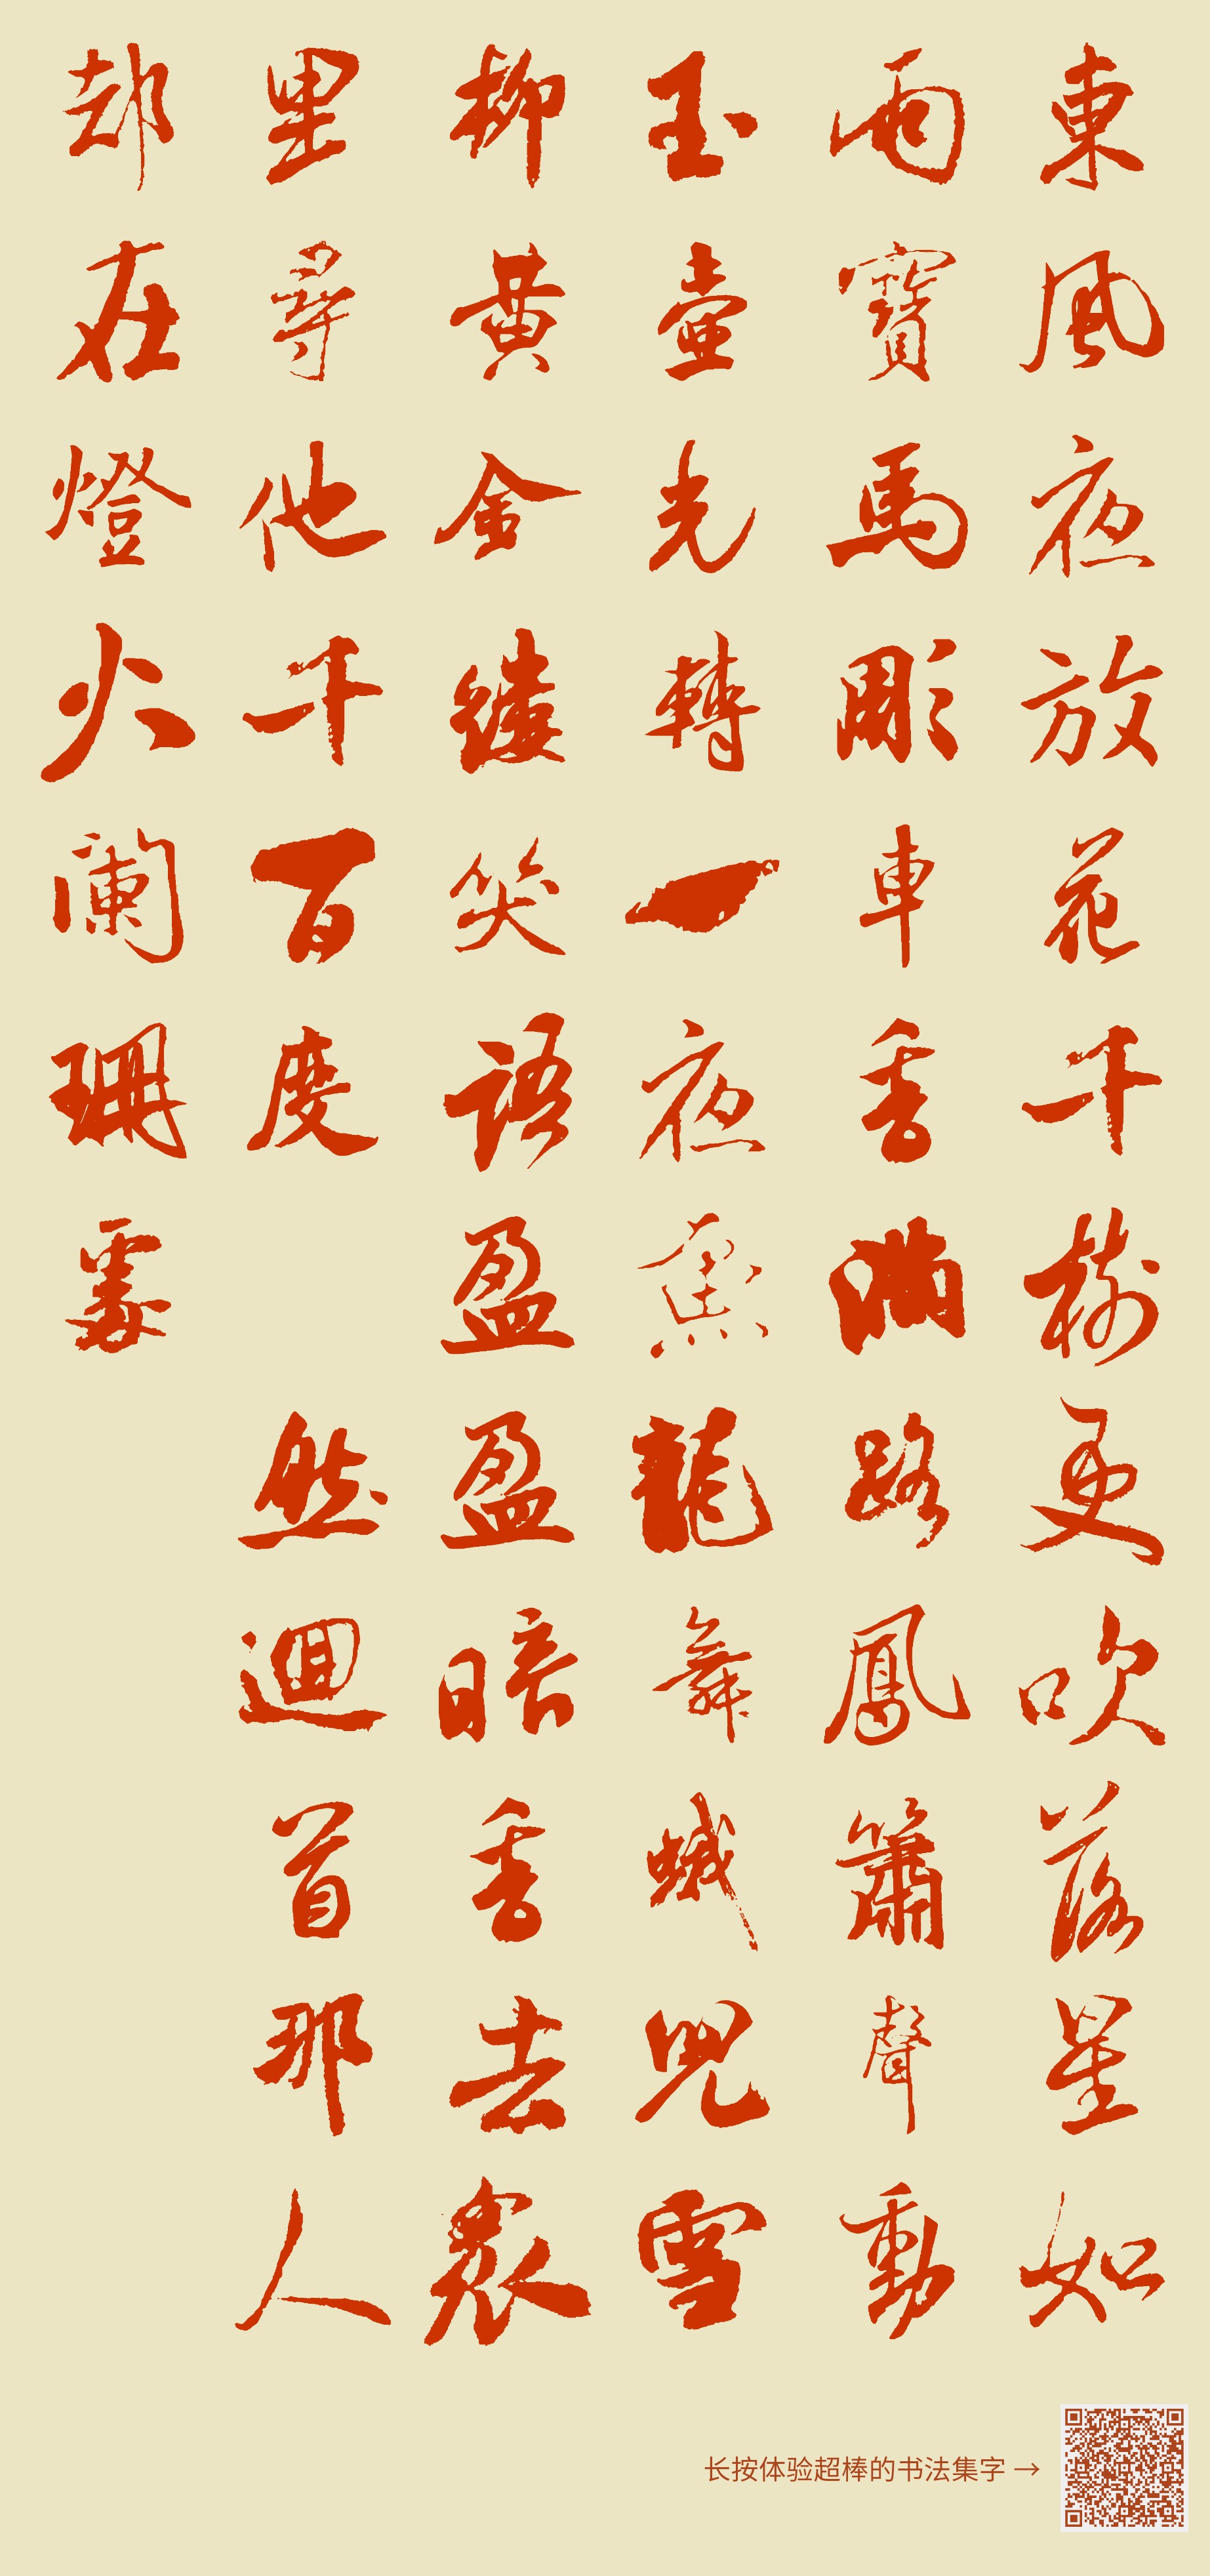 東風夜放花千樹更吹落星如
雨寶馬彫車香滿路鳳簫聲動
玉壺光轉一夜魚龍舞蛾兒雪
柳黃金縷笑語盈盈暗香去衆
里尋他千百度 然迴首那人
却在燈火闌珊處
长按体验超棒的书法集字 →